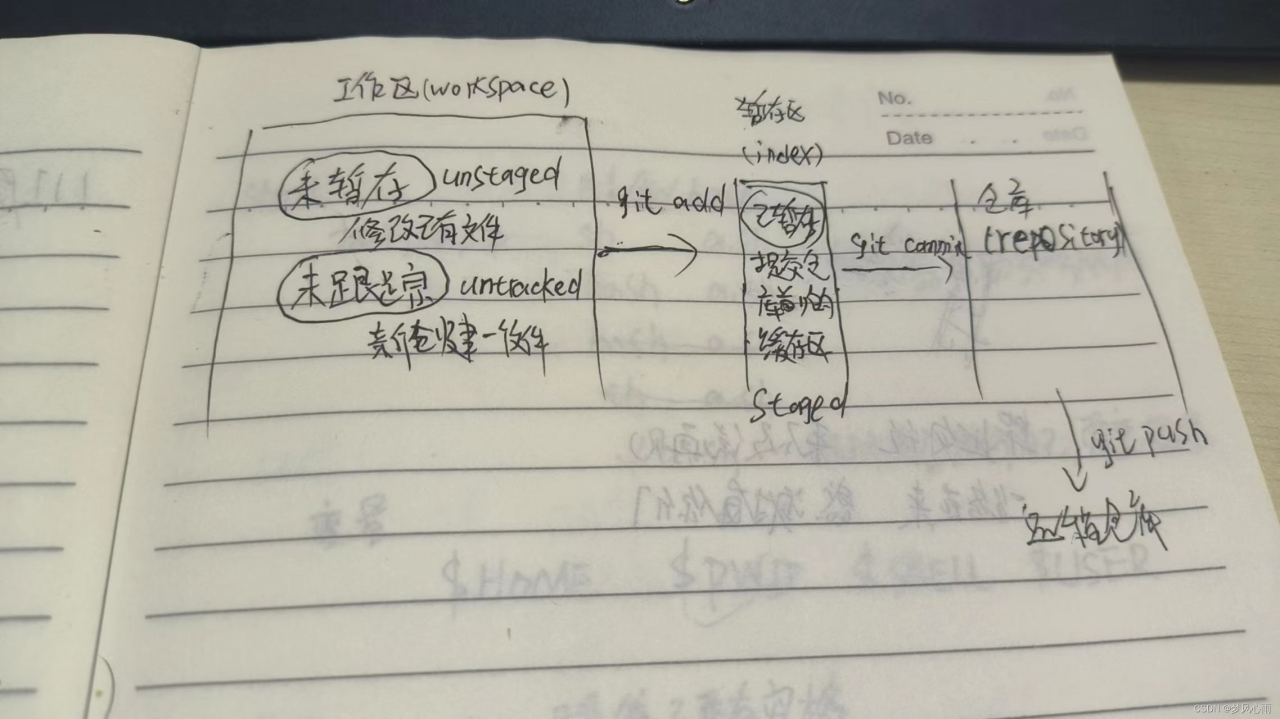 工作区(workspace)
未暂存 unstaged
修改已有文件
未跟踪 untracked
新建一文件
git add
暂存区
(index)
已暂存
提交仓
库前的
缓存区
Staged
git commit
仓库
(repository)
git push
仓库
No.
Date
CSDN @梦风心雨